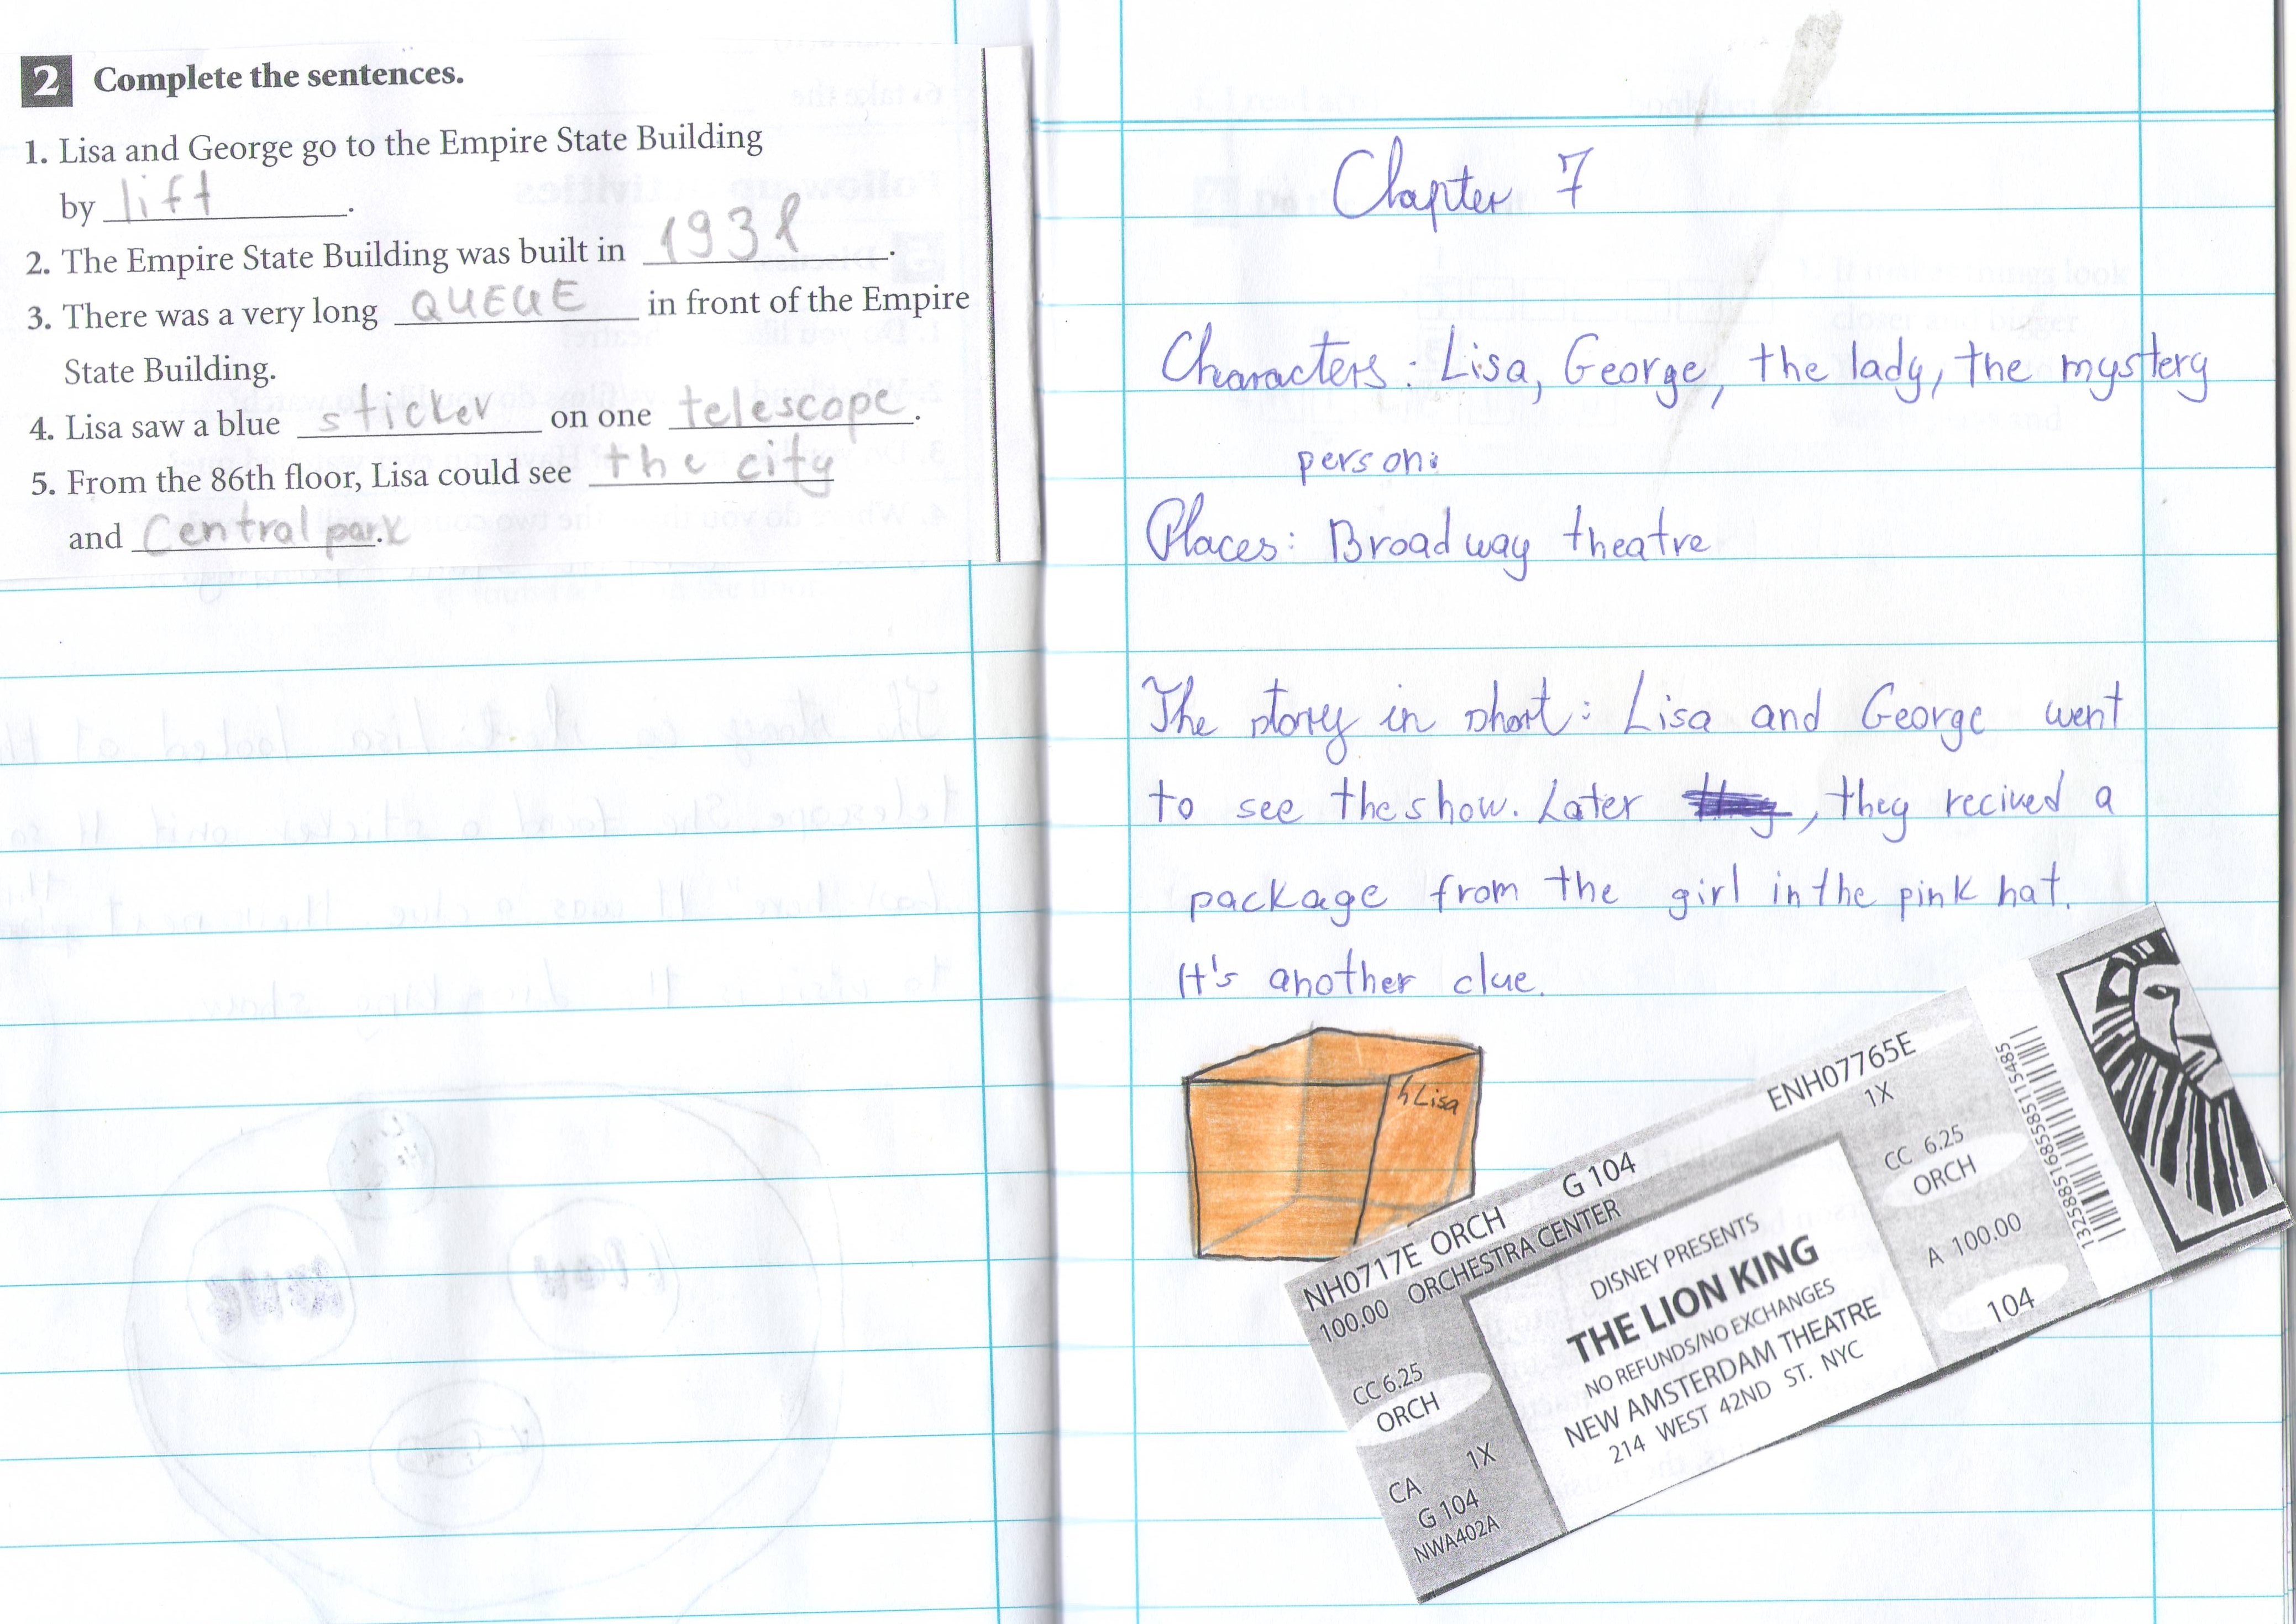 2 Complete the sentences.
1. Lisa and George go to the Empire State Building
by lift.
2. The Empire State Building was built in 1931.
3. There was a very long QUEUE in front of the Empire
State Building.
4. Lisa saw a blue sticker on one telescope.
5. From the 86th floor, Lisa could see the city
and Central park.
Chapter 7
Characters: Lisa, George, the lady, the mystery
person.
Places: Broadway theatre
The story in short: Lisa and George went
to see the show. Later , they recived a
package from the girl in the pink hat.
It's another clue.
Lisa
NH0717E ORCH G 104 ENH07765E
100.00 ORCHESTRA CENTER 1X
CC 6.25
ORCH
CA 1X
G 104
NWA402A
DISNEY PRESENTS
THE LION KING
NO REFUNDS/NO EXCHANGES
NEW AMSTERDAM THEATRE
214 WEST 42ND ST. NYC
CC 6.25
ORCH
A 100.00
104